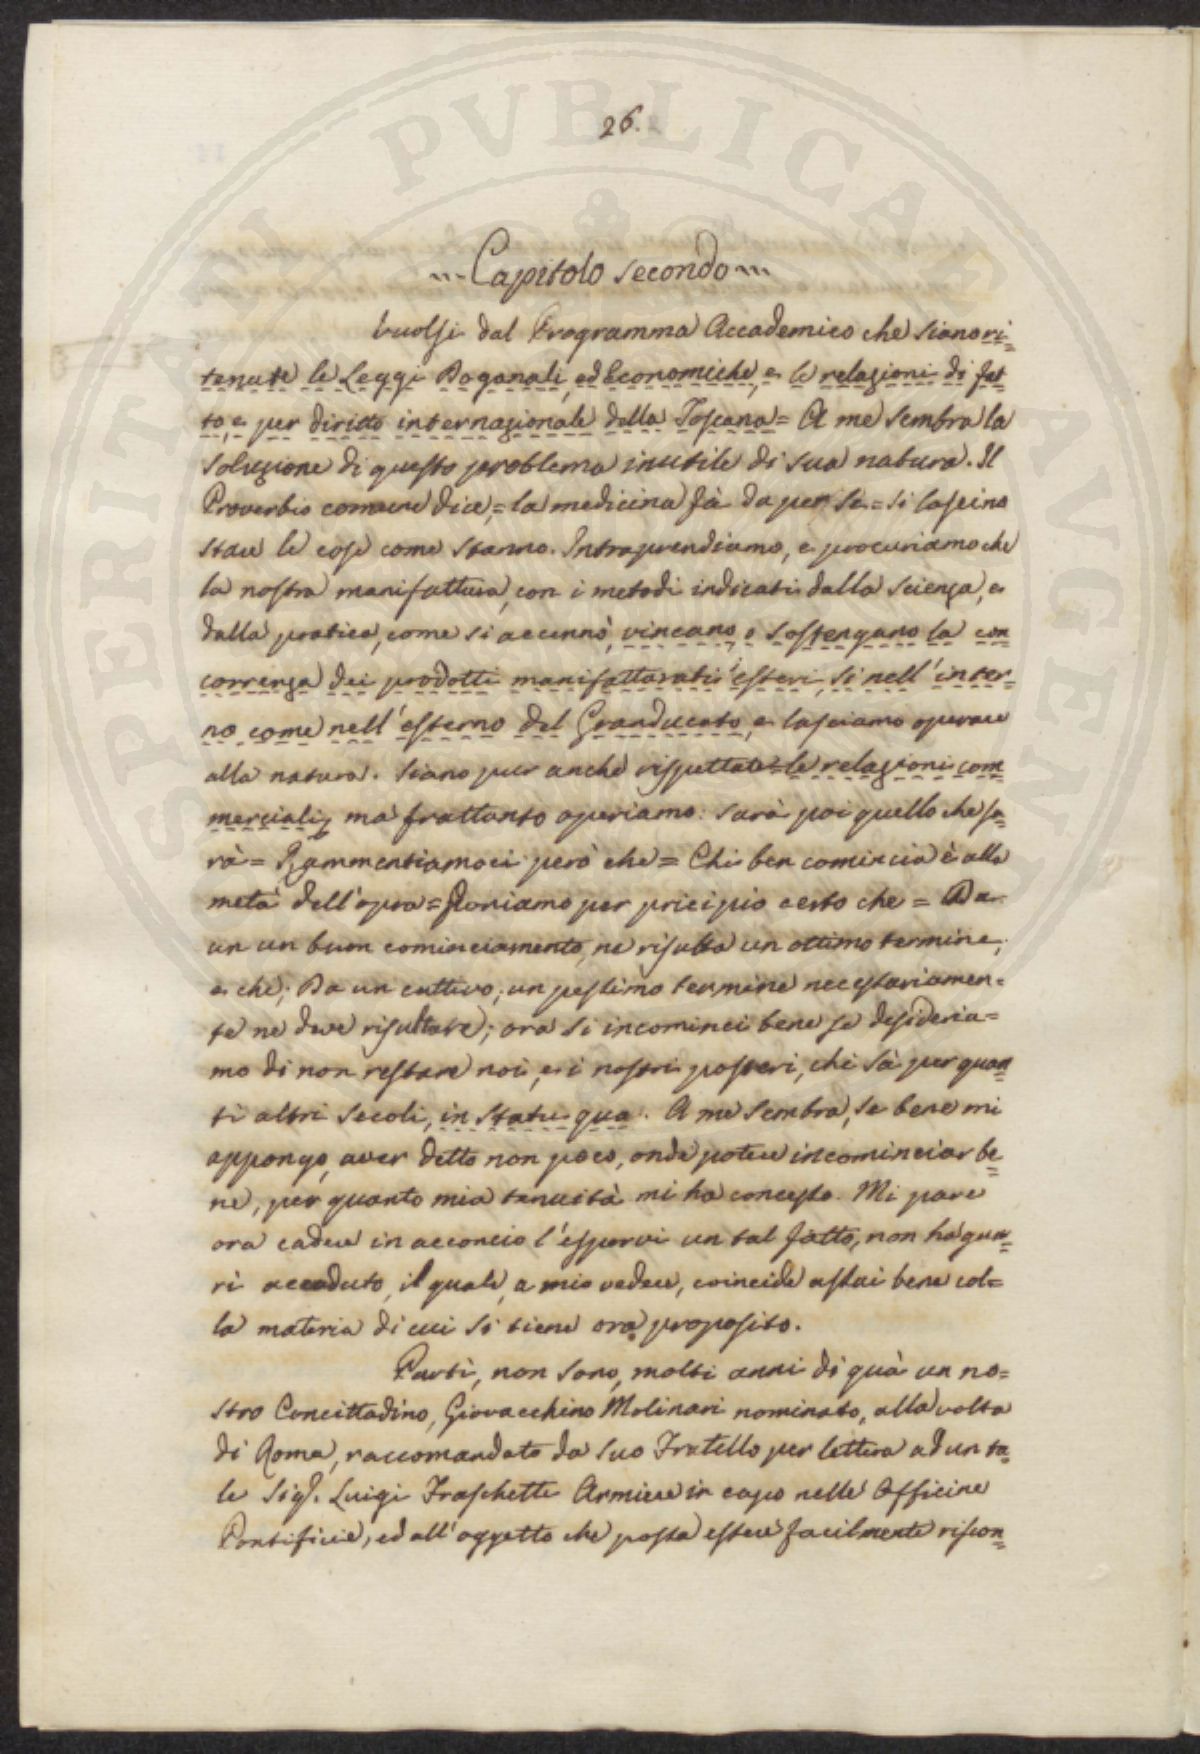 26.
Capitolo secondo
Vuolsi dal Programma Accademico che siano ri=
tenute le Leggi Doganali, ed Economiche, e le relazioni di fat
to, e per diritto internazionale della Toscana = A me sembra la
soluzione di questo problema inutile di sua natura. Il
Proverbio comune dice, = la medicina fà da per se = si lascino
stare le cose come stanno. Intraprendiamo, e procuriamo che
la nostra manifattura, con i metodi indicati dalla scienza, e
dalla pratica, come si accennò, vincano, o sostengano la con
correnza dei prodotti manifatturati esteri, si nell'inter=
no come nell'esterno del Granducato, e lasciamo operare
alla natura. Siano pur anche rispettate = le relazioni com
merciali, ma frattanto operiamo: sarà poi quello che sa=
rà = Rammentiamoci però che = Chi ben comincia è alla
metà dell'opra = Poniamo per pricipio certo che = Da
un un buon cominciamento, ne risulta un ottimo termine;
e che; Da un cattivo; un pessimo termine necessariamen=
te ne deve risultare; ora si incominci bene se desideria=
mo di non restare noi, e i nostri posteri, chi sà per quan
ti altri secoli, in statu quo. A me sembra, se bene mi
appongo, aver detto non poco, onde potere incominciar be=
ne, per quanto mia tenuità mi ha concesso. Mi pare
ora cadere in acconcio l'esporvi un tal fatto, non ha gua=
ri accaduto, il quale, a mio vedere, coincide assai bene col=
la materia di cui si tiene ora proposito.
Partì, non sono, molti anni di quà un no=
stro Concittadino, Giovacchino Molinari nominato, alla volta
di Roma, raccomandato da suo Fratello per lettera ad un ta=
le Sigr. Luigi Fraschetti Armiere in capo nelle Officine
Pontificie, ed all'oggetto che possa essere facilmente riscon=